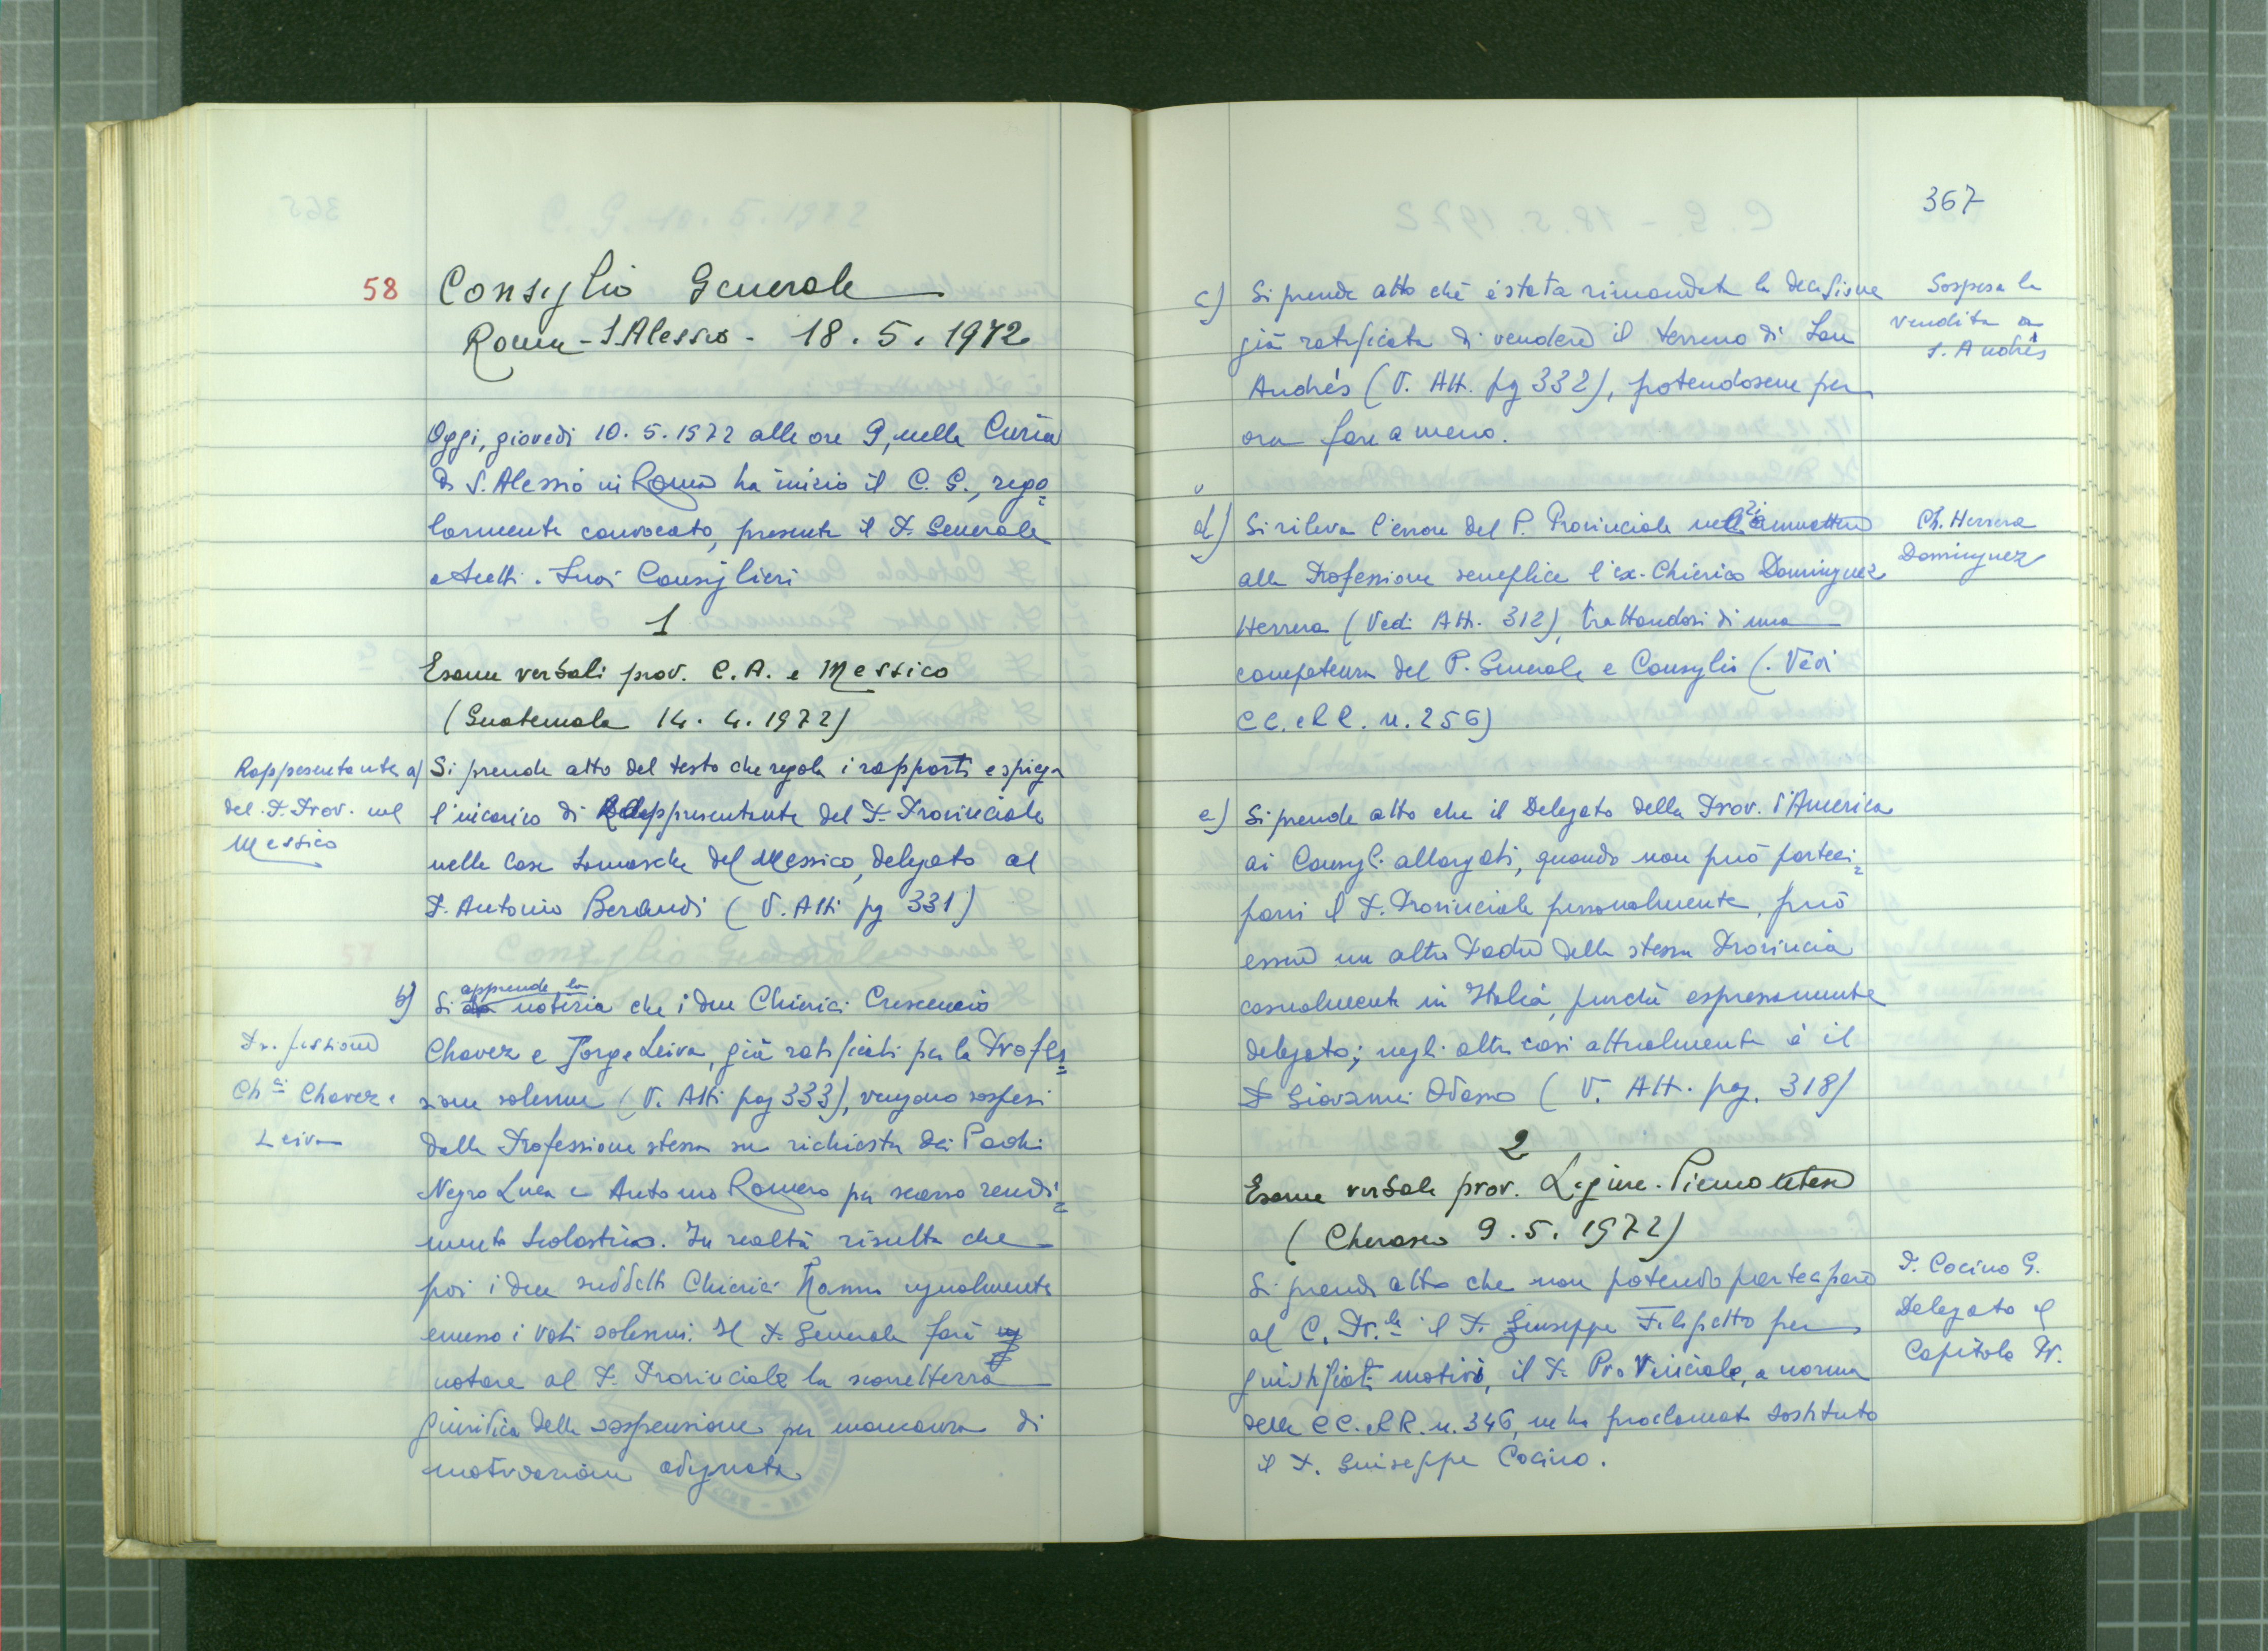 58
Consiglio Generale
Roma - S. Alessio - 18.5.1972
Oggi, giovedì 10.5.1972 alle ore 9, nella Curia
di S. Alessio in Roma ha inizio il C. G., rego=
larmente convocato, presente il P. Generale
e tutti i Suoi Consiglieri
1
Esame verbali prov. C.A. e Messico
(Guatemala 14.4.1972)
Rappresentante
del P. Prov. nel
Messico
a) Si prende atto del testo che regola i rapporti e spiega
l'incarico di Rappresentante del P. Provinciale
nelle Case Somasche del Messico, delegato al
P. Antonio Beraudi (V. Atti pg 331)
Professione
Ch.ci Chavez e
Leiva
b) Si apprende la notizia che i due Chierici Crescencio
Chavez e Jorge Leiva, già ratificati per la Profes=
sione solenne (V. Atti pag 333), vengono sospesi
dalla Professione stessa su richiesta dei Padri
Negro Luca e Antonio Romero per scarso rendi=
mento scolastico. In realtà risulta che
poi i due suddetti Chierici hanno ugualmente
emesso i voti solenni. Il P. Generale farà
notare al P. Provinciale la scorrettezza
giuridica della sospensione per mancanza di
motivazione adeguata
367
c) Si prende atto che è stata rimandata la decisione
già ratificata di vendere il terreno di San
Andrés (V. Att. pg 332), potendosene per
ora fare a meno.
Sospesa la
vendita a
S. Andrés
d) Si rileva l'errore del P. Provinciale nell'ammettere
alla Professione semplice l'ex-Chierico Dominguez
Herrera (Vedi Att. 312), trattandosi di una
competenza del P. Generale e Consiglio (Vedi
CC. e RR. n. 256)
Ch. Herrera
Dominguez
e) Si prende atto che il Delegato della Prov. d'America
ai Consigl. allargati, quando non può parteci=
parvi il P. Provinciale personalmente, può
essere un altro Padre della stessa Provincia
casualmente in Italia, purché espressamente
delegato; negli altri casi attualmente è il
P. Giovanni Odasso (V. Att. pag. 318)
2
Esame verbale prov. Ligure-Piemontese
(Cherasco 9.5.1972)
Si prende atto che non potendo partecipare
al C. Pr.le il P. Giuseppe Filippetto per
giustificati motivi, il P. Provinciale, a norma
delle CC. e RR. n. 346, ne ha proclamato sostituto
il P. Giuseppe Cocino.
P. Cocino G.
Delegato al
Capitolo Pr.